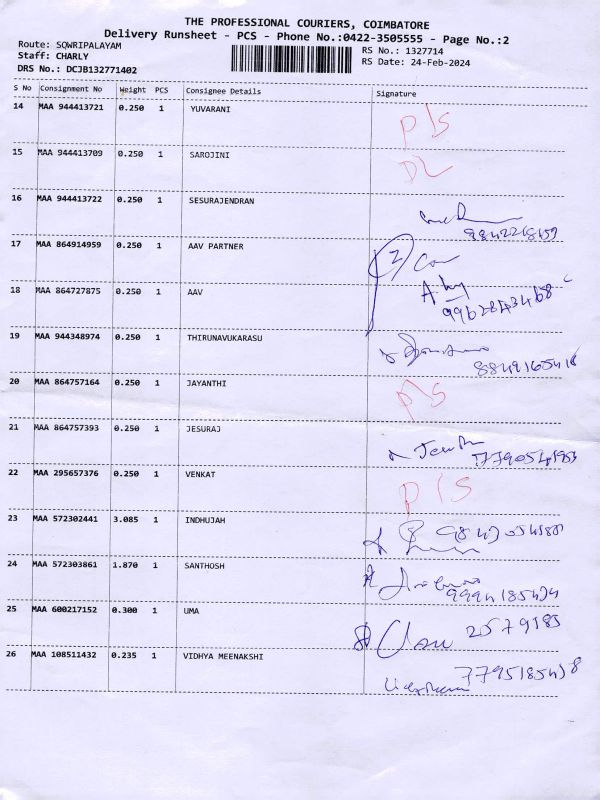 THE PROFESSIONAL COURIERS, COIMBATORE
Delivery Runsheet - PCS - Phone No.:0422-3505555 - Page No.:2
Route: SOWRIPALAYAM
Staff: CHARLY
DRS No.: DCJB132771402
RS No.: 1327714
RS Date: 24-Feb-2024
S No Consignment No Weight PCS Consignee Details Signature
14 MAA 944413721 0.250 1 YUVARANI P/S
15 MAA 944413709 0.250 1 SAROJINI DL
16 MAA 944413722 0.250 1 SESURAJENDRAN
17 MAA 864914959 0.250 1 AAV PARTNER
18 MAA 864727875 0.250 1 AAV
19 MAA 944348974 0.250 1 THIRUNAVUKARASU
20 MAA 864757164 0.250 1 JAYANTHI P/S
21 MAA 864757393 0.250 1 JESURAJ
22 MAA 295657376 0.250 1 VENKAT P/S
23 MAA 572302441 3.085 1 INDHUJAH
24 MAA 572303861 1.870 1 SANTHOSH
25 MAA 600217152 0.300 1 UMA
26 MAA 108511432 0.235 1 VIDHYA MEENAKSHI